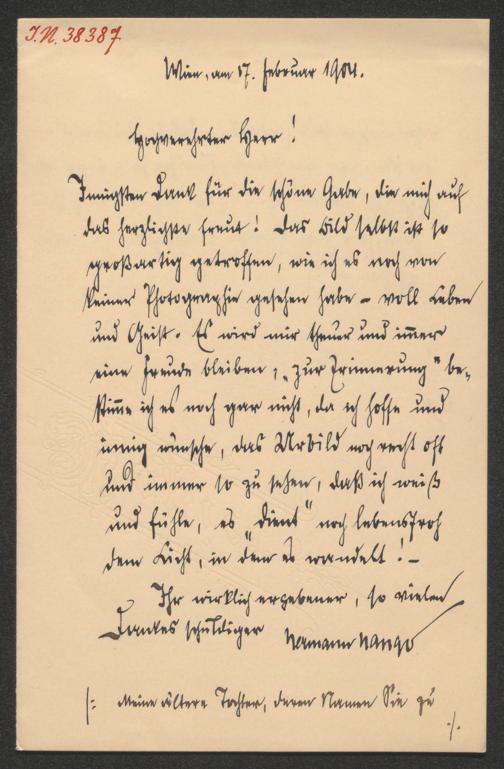 J.N. 38387
Wien, am 17. Februar 1904.
Hochverehrter Herr!
Innigsten Dank für die schöne Gabe, die mich auf
das herzlichste freut! Das Bild selbst ist so
großartig getroffen, wie ich es noch von
keiner Photographie gesehen habe – voll Leben
und Geist. Es wird mir theuer und im̅er
eine Freude bleiben; „zur Erinnerung" be-
stim̅e ich es noch gar nicht, da ich hoffe und
innig wünsche, das Urbild noch recht oft
und immer so zu sehen, daß ich weiß
und fühle, es „dient" noch lebensfroh
dem Licht, in dem es wandelt! –
Ihr wirklich ergebener, so vielen
Dankes schuldiger
/: Meine ältere Tochter, deren Namen Sie zu
./.